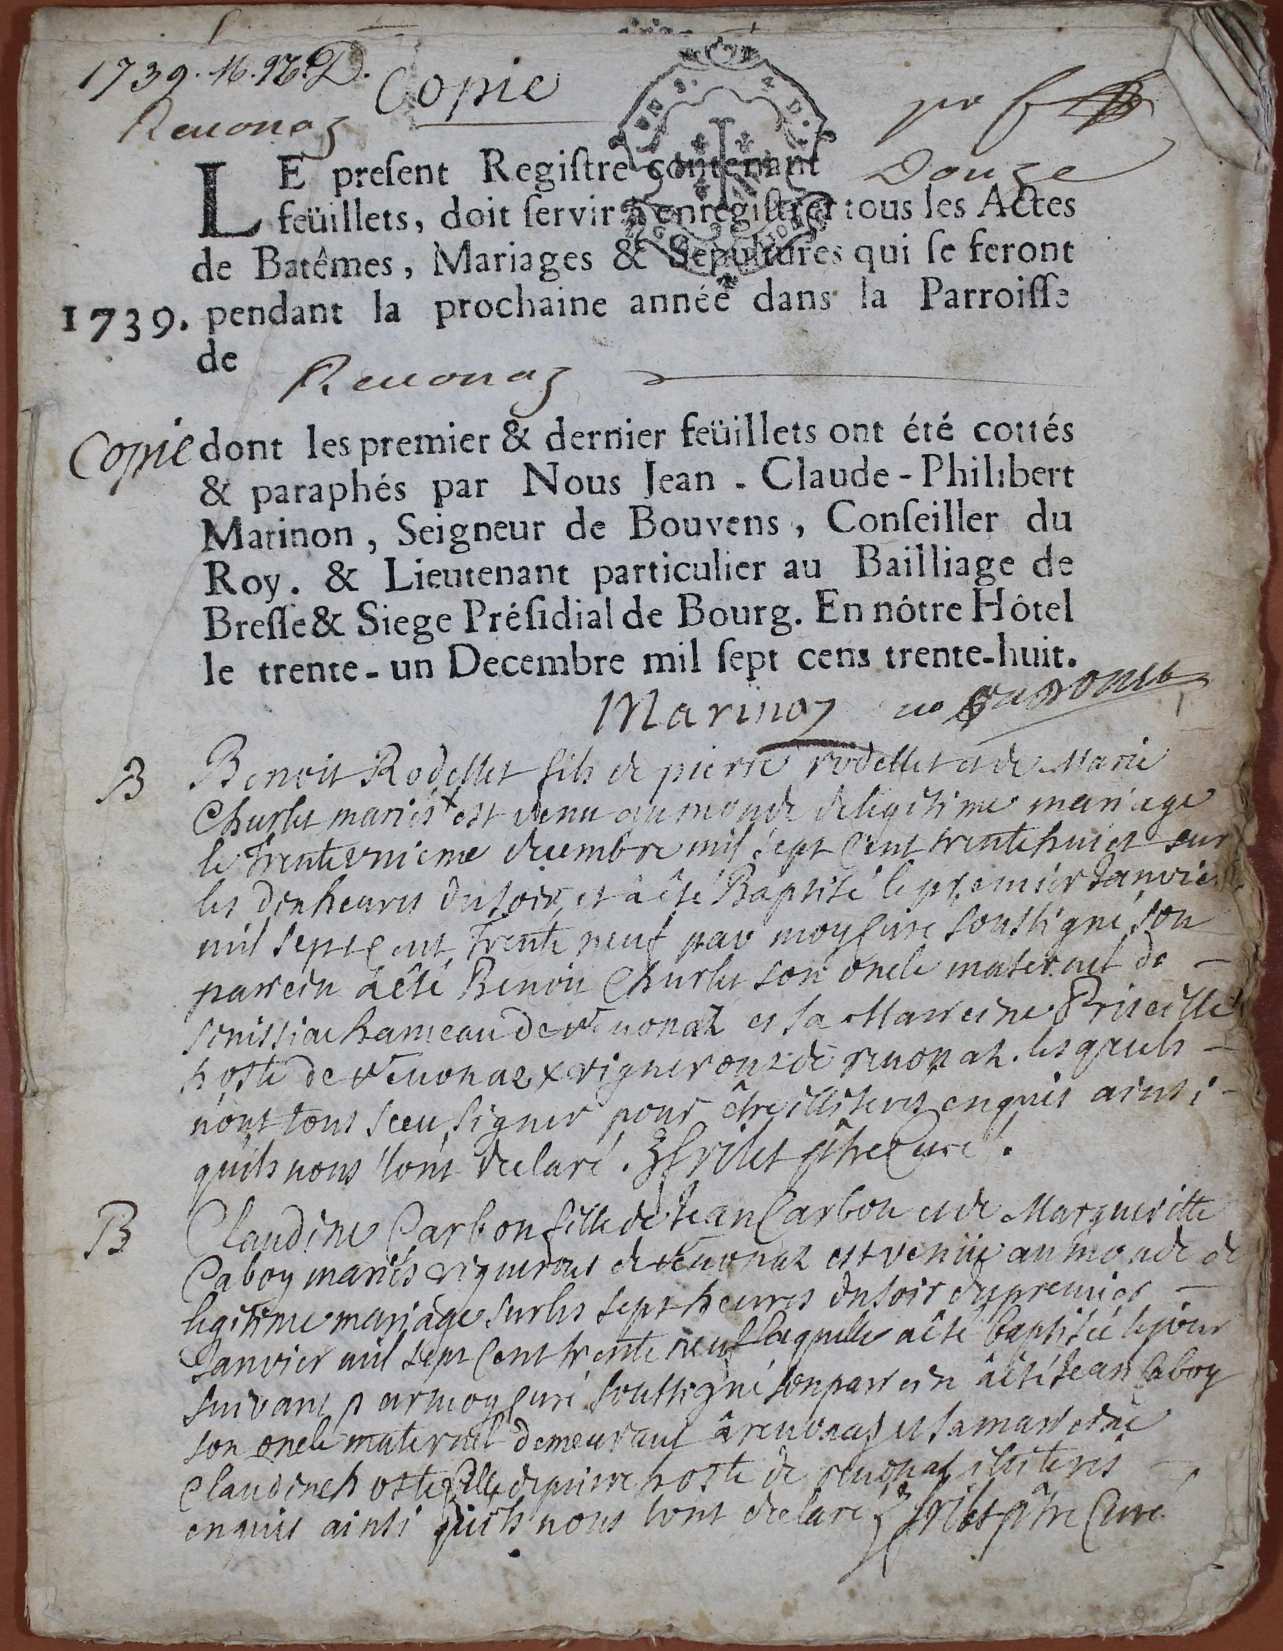 1739.
Copie
Reuonaz
Douze
LE preſent Regiſtre contenant
feüillets, doit ſervir à enregiſtrer tous les Actes
de Batêmes, Mariages & Sepultures qui ſe feront
1739. pendant la prochaine année dans la Parroiſſe
de
Reuonaz
Copie dont les premier & dernier feüillets ont été cottés
& paraphés par Nous Jean - Claude - Philibert
Marinon, Seigneur de Bouvens, Conſeiller du
Roy. & Lieutenant particulier au Bailliage de
Breſſe & Siege Préſidial de Bourg. En nôtre Hôtel
le trente-un Decembre mil ſept cens trente-huit.
Marinon
B Benoit Rodellet fils de pierre rodellet et de Marie
Charlet mariés est venu au monde de legitime mariage
le trente vnieme decembre mil sept Cent trente huict sur
les dix heures du soir, et à été Baptisé le premier Janvier
mil sept Cent trente neuf par moy Curé soussigné, son
parrein à été Benoit Charlet son oncle maternel de
senissia hameau de reuonaz et sa Marreine Priscille
hoste de reuonaz vignerons de reuonaz. lesquels
n'ont tous sceu signer pour être illiteres enquis ainsi
qu'ils nous l'ont declaré. frilet ptre Curé.
B Claudine Carbon fille de Jean Carbon et de Margueritte
Caboy mariés vignerons de reuonaz est venüe au monde de
legitime mariage sur les sept heures du soir du premier
Janvier mil sept Cent trente neuf laquelle a été baptisée le jour
suivant par moy Curé soussigné son parrein à été Jean Caboy
son oncle maternel demeurant à reuonaz et sa marreine
Claudine hoste fille de pierre hoste de reuonaz illiteres
enquis ainsi qu'ils nous l'ont declaré frilet ptre Curé